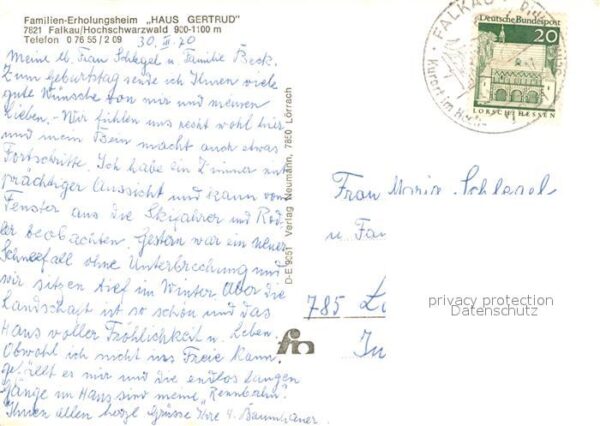 Familien-Erholungsheim „HAUS GERTRUD"
7821 Falkau/Hochschwarzwald 900-1100 m
Telefon 0 76 55 / 2 09
30. III. 70
Meine lb. Frau Schlegel u. Familie Beck.
Zum Geburtstag sende ich Ihnen viele
gute Wünsche von mir und meinen
Lieben. - Wir fühlen uns recht wohl hier
und mein Bein macht auch etwas
Fortschritte. Ich habe ein Zimmer mit
prächtiger Aussicht und kann vom
Fenster aus die Skifahrer und Rod-
ler beobachten. Gestern war ein neuer
Schneefall ohne Unterbrechung und
wir sitzen tief im Winter. Aber die
Landschaft ist so schön und das
Haus voller Fröhlichkeit u. Leben.
Obwohl ich nicht ins Freie kann,
gefällt es mir und die endlos langen
Gänge im Haus sind meine „Rennbahn".
Ihnen allen herzl Grüsse Ihre
D-E 9051 Verlag Neumann, 7850 Lörrach
FALKAU
Kurort im
Deutsche Bundespost
20
LORSCH/HESSEN
Frau Maria Schlegel
u. Fam
785 Lö
In
privacy protection
Datenschutz